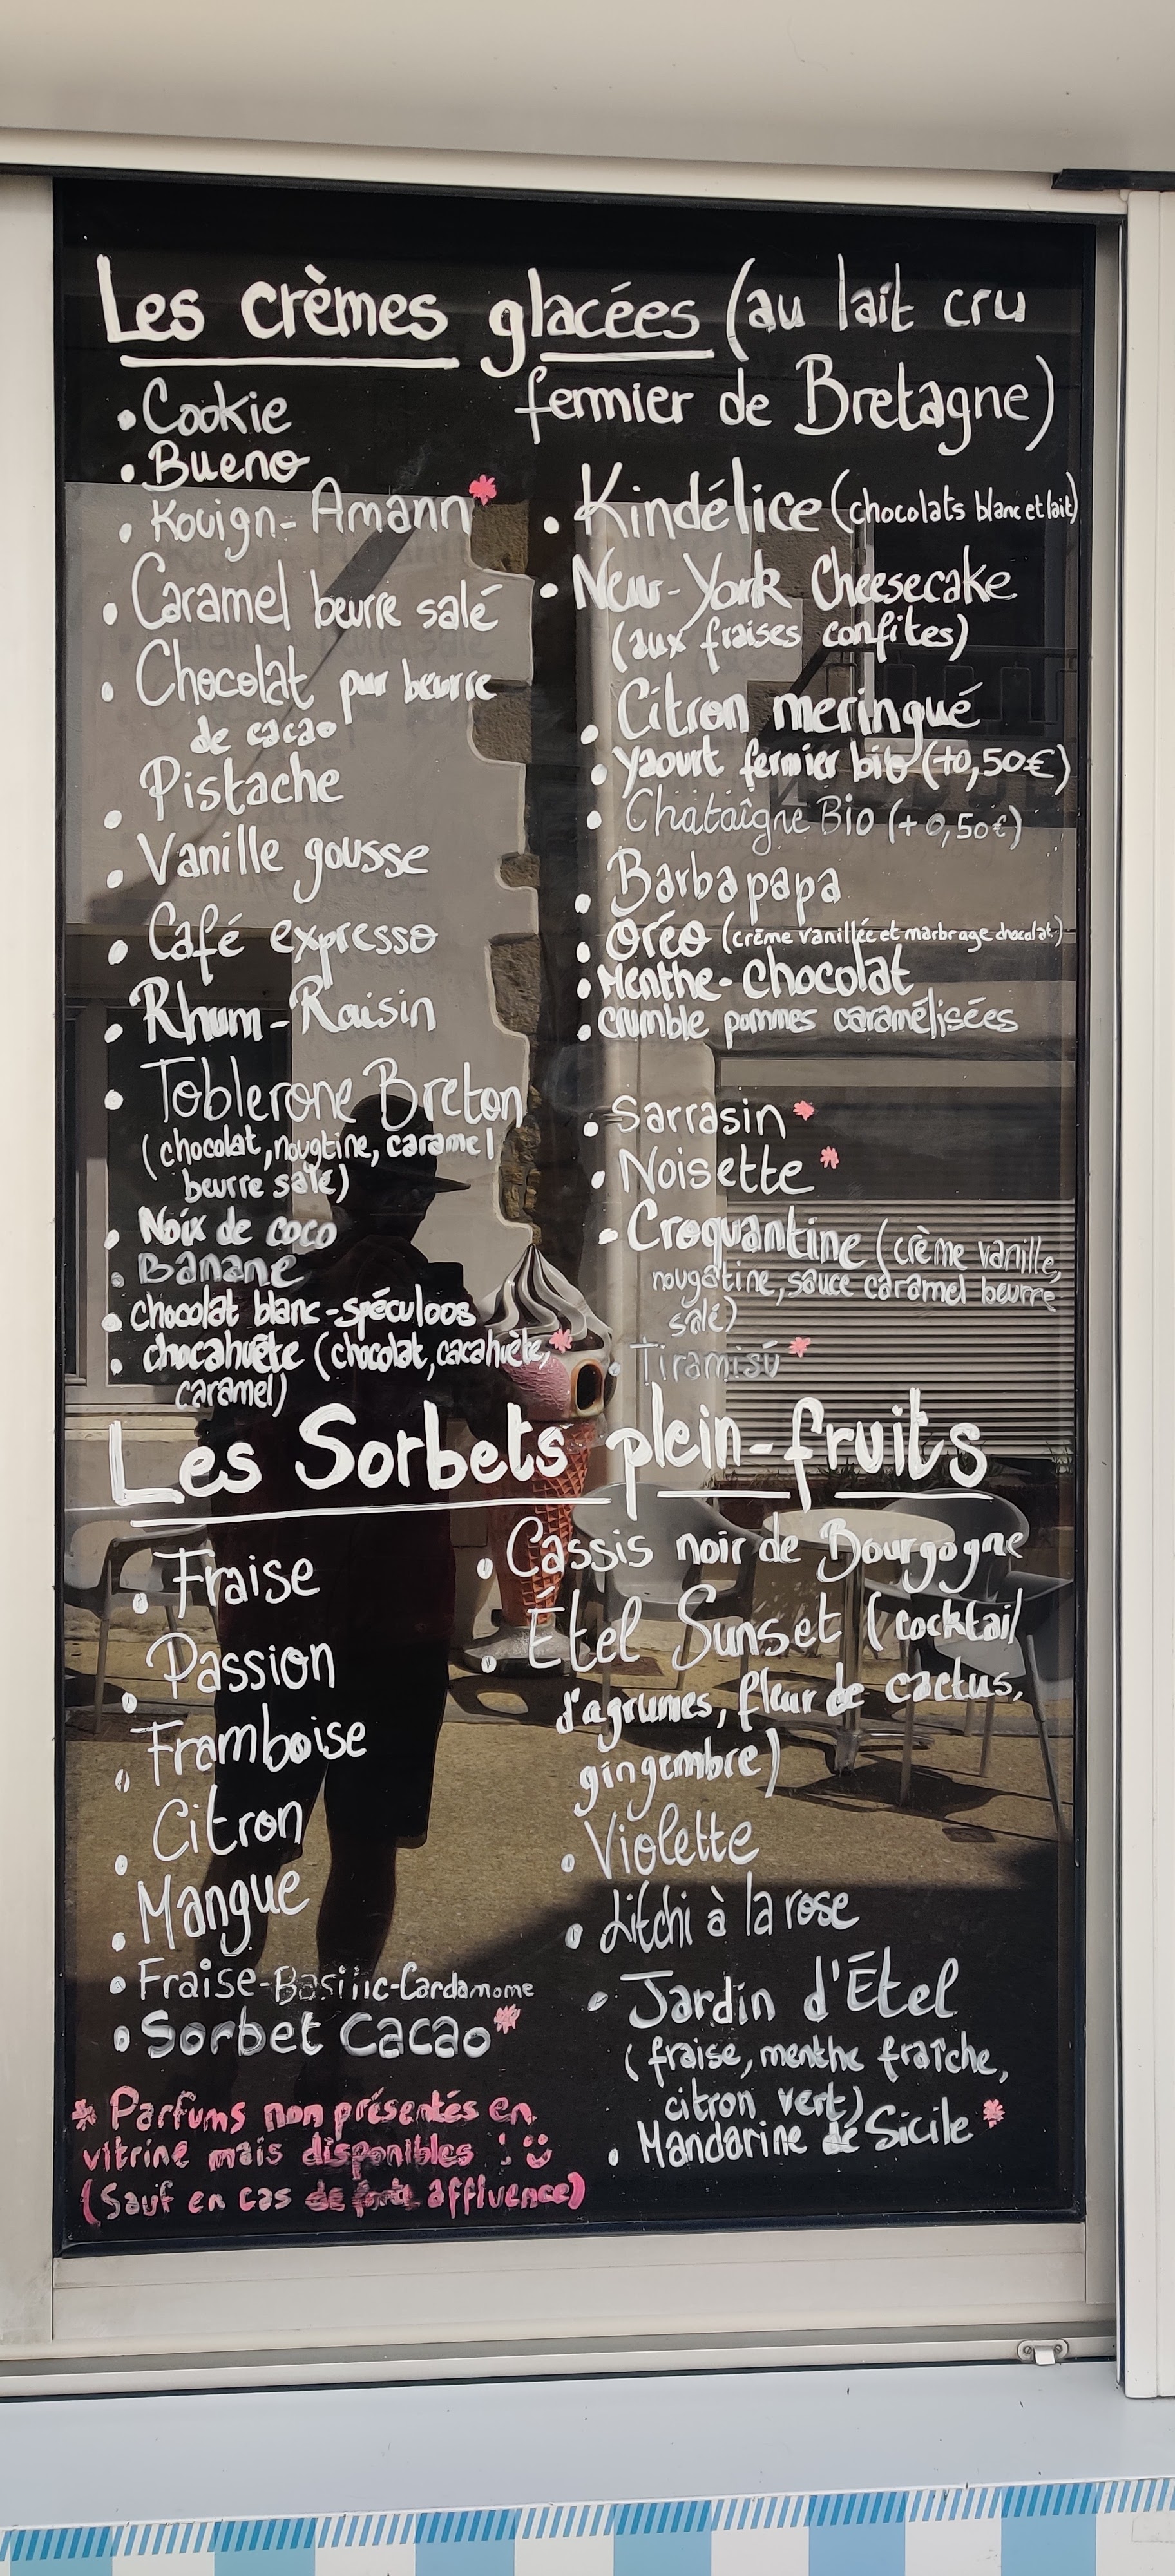 Les crèmes glacées (au lait cru
fermier de Bretagne)
• Cookie
• Bueno
• Kouign-Amann*
• Caramel beurre salé
• Chocolat pur beurre
de cacao
• Pistache
• Vanille gousse
• Café expresso
• Rhum-Raisin
• Toblerone Breton
(chocolat, nougtine, caramel
beurre salé)
• Noix de coco
• Banane
• chocolat blanc-spéculoos
• chocahuète (chocolat, cacahuète,*
caramel)
• Kindélice (chocolats blanc et lait)
• New-York Cheesecake
(aux fraises confites)
• Citron meringué
• yaourt fermier bio (+0,50€)
• Chataîgne Bio (+0,50€)
• Barbapapa
• Oréo (crème vanillée et marbrage chocolat)
• Menthe-chocolat
• crumble pommes caramélisées
• Sarrasin*
• Noisette*
• Croquantine (crème vanille,
nougatine, sauce caramel beurre
salé)
• Tiramisú*
Les Sorbets plein-fruits
• Fraise
• Passion
• Framboise
• Citron
• Mangue
• Fraise-Basilic-Cardamome
• Sorbet Cacao*
• Cassis noir de Bourgogne
• Étel Sunset (cocktail
d'agrumes, fleur de cactus,
gingembre)
• Violette
• Litchi à la rose
• Jardin d'Étel
(fraise, menthe fraîche,
citron vert)
• Mandarine de Sicile*
* Parfums non présentés en
vitrine mais disponibles ! :)
(Sauf en cas de forte affluence)